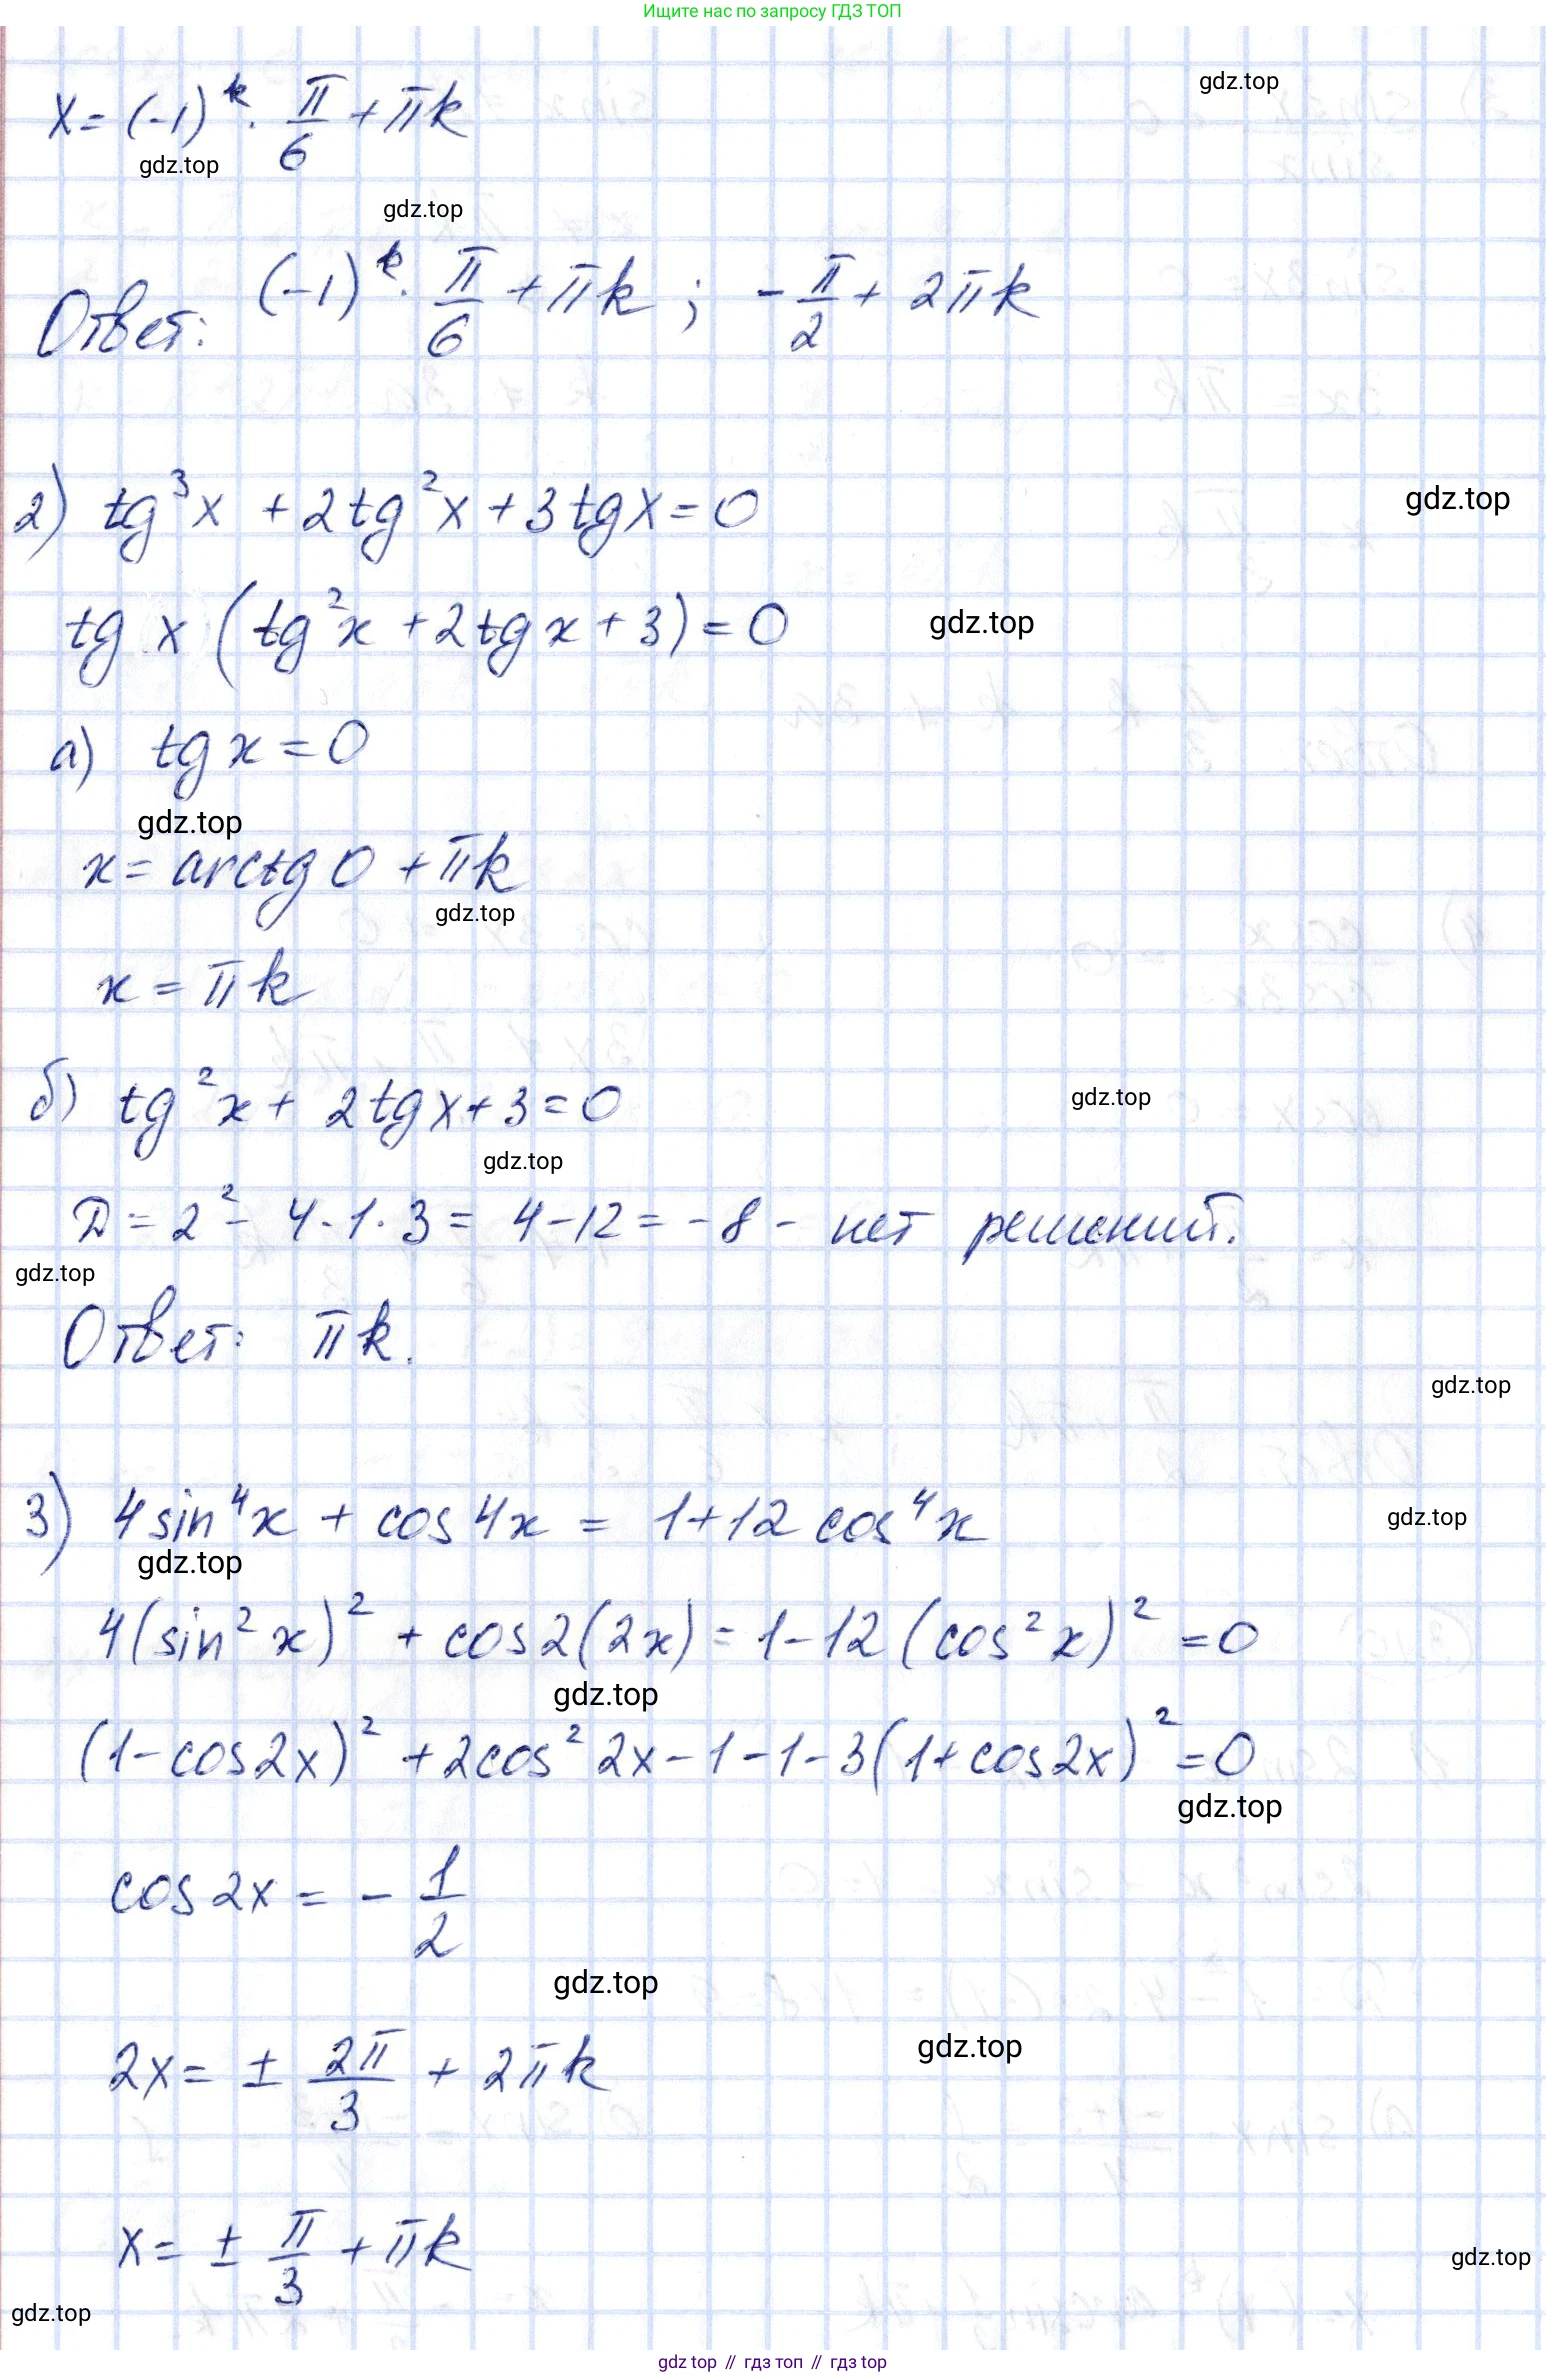 Ищите нас по запросу ГДЗ ТОП
gdz.top
x = (-1)^k · π/6 + πk
gdz.top
gdz.top
Ответ: (-1)^k · π/6 + πk ; -π/2 + 2πk
2) tg³x + 2tg²x + 3tgx = 0
gdz.top
tg x (tg²x + 2tg x + 3) = 0
gdz.top
а) tg x = 0
gdz.top
x = arctg 0 + πk
gdz.top
x = πk
б) tg²x + 2tgx + 3 = 0
gdz.top
gdz.top
D = 2² - 4 · 1 · 3 = 4 - 12 = -8 - нет решений.
gdz.top
Ответ: πk.
gdz.top
3) 4sin⁴x + cos4x = 1 + 12cos⁴x
gdz.top
gdz.top
4(sin²x)² + cos2(2x) = 1 - 12(cos²x)² = 0
gdz.top
(1 - cos2x)² + 2cos²2x - 1 - 1 - 3(1 + cos2x)² = 0
gdz.top
cos2x = - 1/2
gdz.top
2x = ± 2π/3 + 2πk
gdz.top
x = ± π/3 + πk
gdz.top
gdz.top
gdz top // гдз топ // гдз top